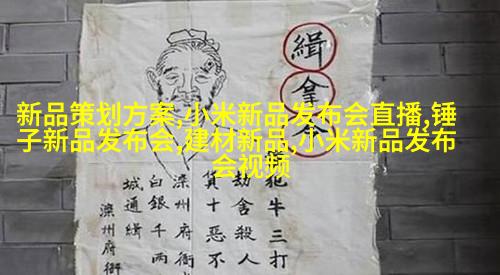 新品策划方案,小米新品发布会直播,锤
子新品发布会,建材新品,小米新品发布
会视频
緝拿令
犯牛三打
劫舍殺人
貨十惡不
滦州府衙
白銀千两
城通緝
滦州府衙